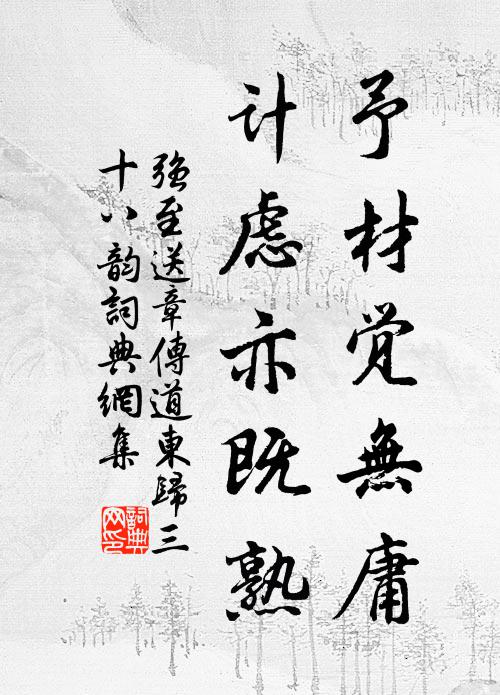 予材觉無庸
计虑亦既熟
强至送章傳道東歸三
十八韵詞典網集
詞典网印